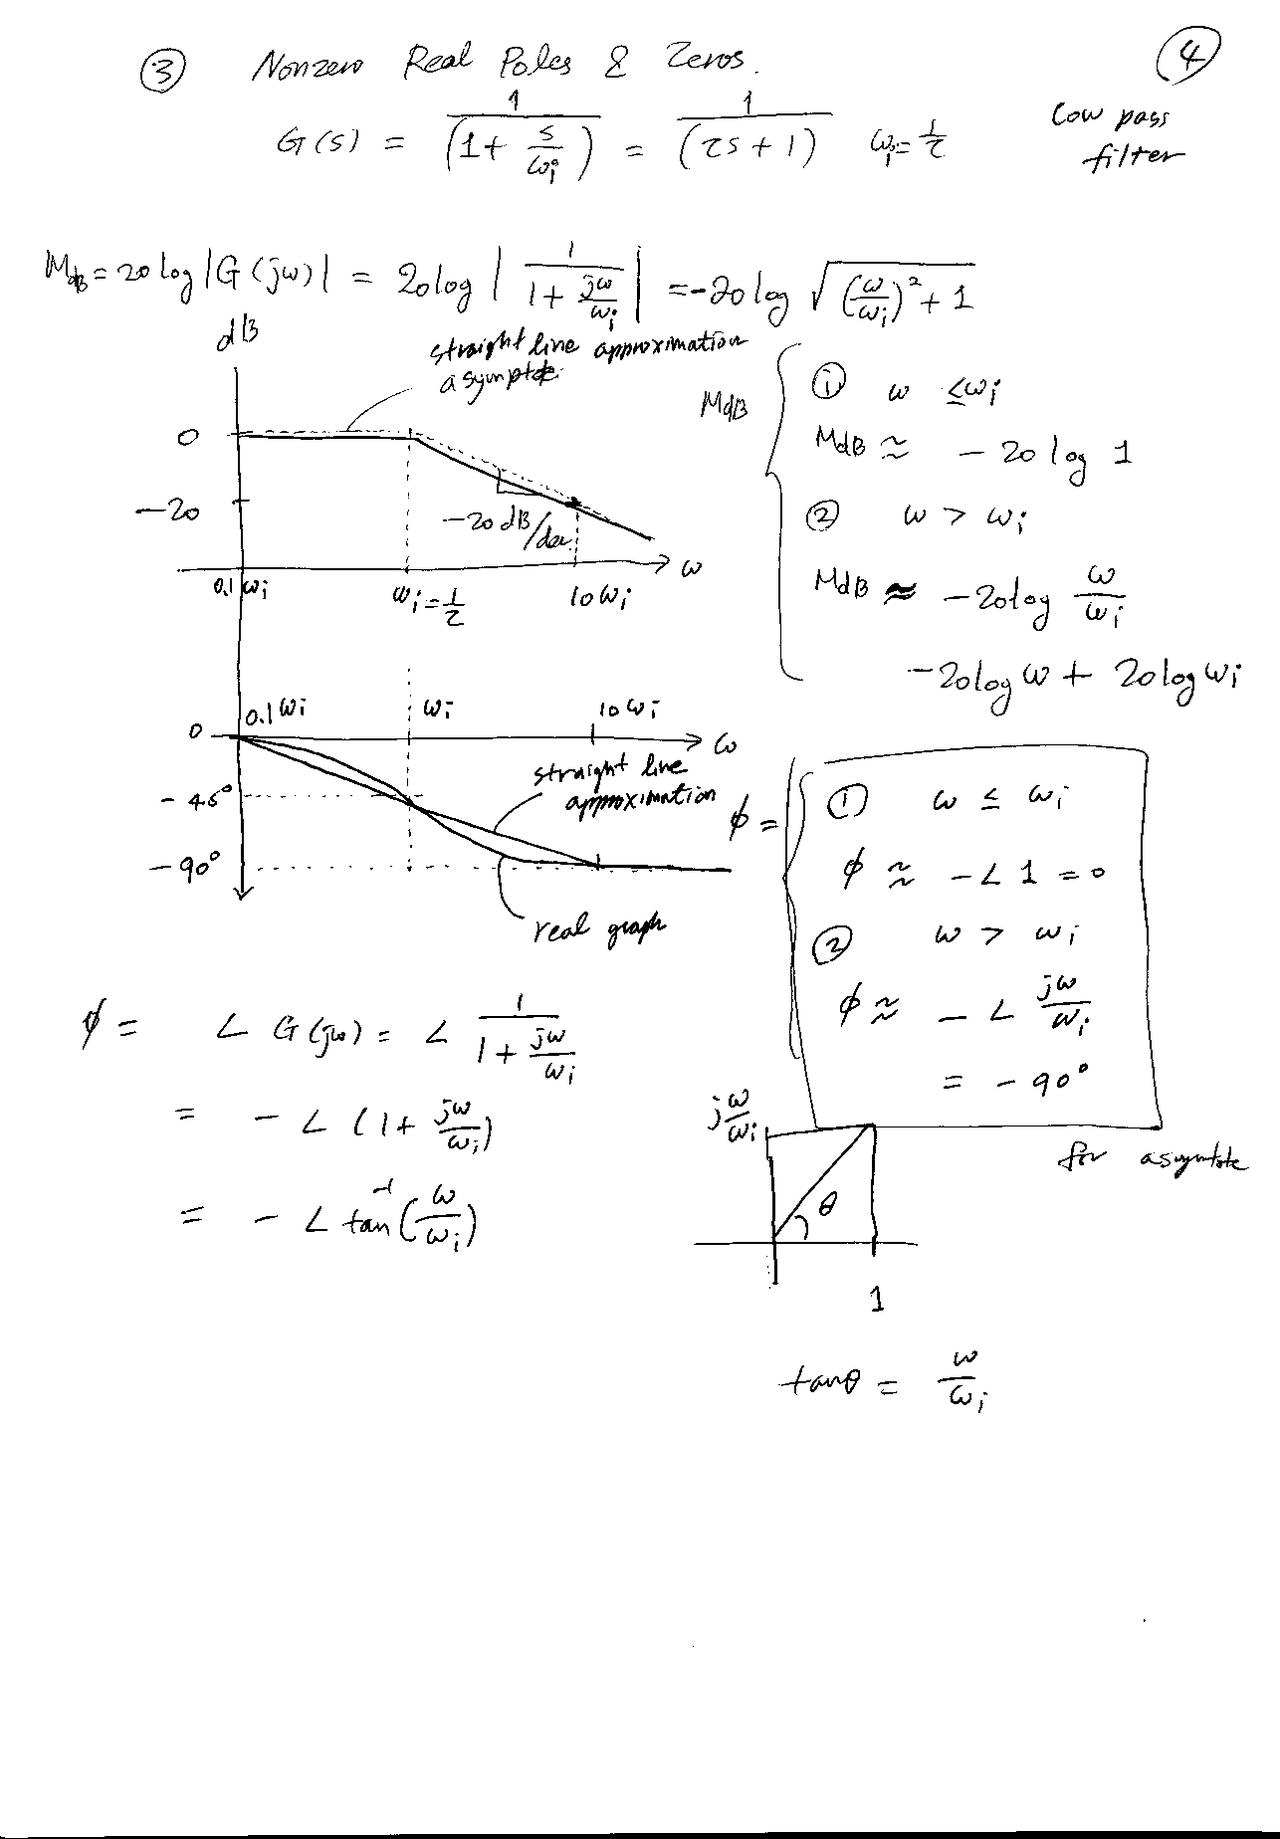 ③ Nonzero Real Poles & Zeros. ④
G(s) = 1/(1 + s/ωi) = 1/(τs + 1) ωi = 1/τ
Low pass
filter
MdB = 20 log |G(jω)| = 20 log |1/(1 + jω/ωi)| = -20 log √((ω/ωi)² + 1)
dB
straight line approximation
asymptote
0
-20
-20 dB/dec.
ω
0.1 ωi
ωi = 1/τ
10 ωi
MdB
① ω ≤ ωi
MdB ≈ -20 log 1
② ω > ωi
MdB ≈ -20 log ω/ωi
-20 log ω + 20 log ωi
0.1 ωi
ωi
10 ωi
0
ω
straight line
approximation
-45°
-90°
real graph
φ =
① ω ≤ ωi
φ ≈ -∠1 = 0
② ω > ωi
φ ≈ -∠ jω/ωi
= -90°
for asymptote
φ = ∠ G(jω) = ∠ 1/(1 + jω/ωi)
= -∠ (1 + jω/ωi)
= -∠ tan⁻¹(ω/ωi)
jω/ωi
θ
1
tanθ = ω/ωi